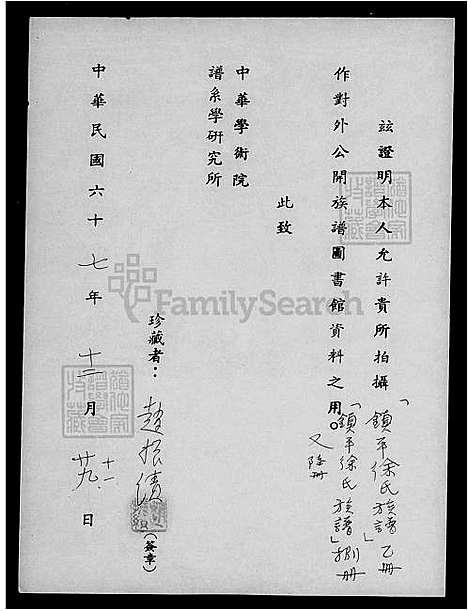 茲證明本人允許貴所拍攝「鎮平徐氏族譜」乙冊
作對外公開族譜圖書館資料之用。「鎮平徐氏族譜」捌冊
此致
中華學術院
譜系學研究所
珍藏者：趙振績
（簽章）
中華民國六十七年十二月廿九日
FamilySearch